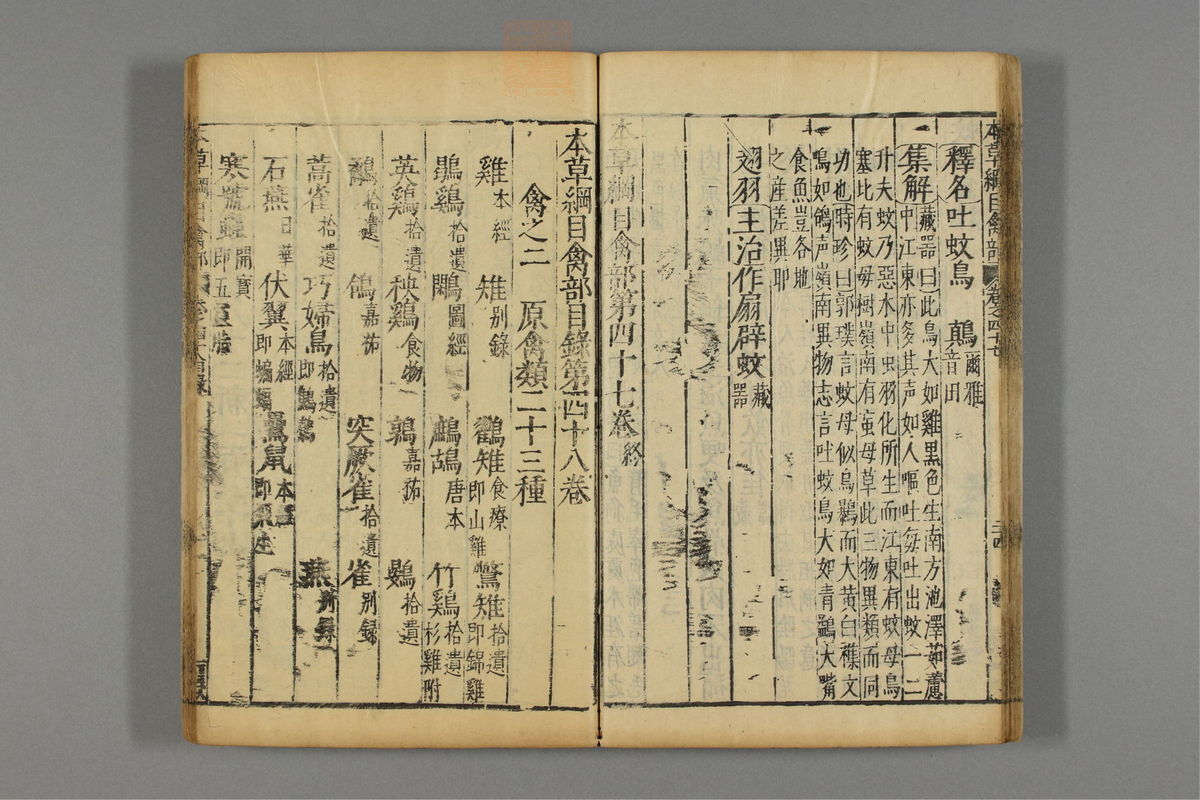 釋名吐蚊鳥 鷏爾雅音田
集解藏器曰此鳥大如雞黑色生南方池澤茹藘
中江東亦多其声如人嘔吐每吐出蚊一二
升夫蚊乃惡水中虫羽化所生而江東有蚊母鳥
塞北有蚊母樹嶺南有䖟母草此三物異類而同
功也時珍曰郭璞言蚊母似烏鷃而大黃白襍文
鳴如鴿声嶺南異物志言吐蚊鳥大如青鷁大嘴
食魚豈各地
之産差異耶
翅羽主治作扇辟蚊藏器
本草綱目禽部第四十七卷終
本草綱目禽部目錄第四十八卷
禽之二 原禽類二十三種
雞本經 雉别錄 鸐雉食療即山雞 鷩雉拾遺即錦雞
鶡雞拾遺 鷴圖經 鷓鴣唐本 竹雞拾遺杉雞附
英鷄拾遺 秧鷄食物 鶉嘉祐 鷃拾遺
鷸拾遺 鴿嘉祐 突厥雀拾遺 雀别録
蒿雀拾遺 巧婦鳥拾遺即鷦鷯 燕别錄
石燕日華 伏翼本經即蝙蝠 鸓鼠本經
寒號蟲開寶即五靈脂